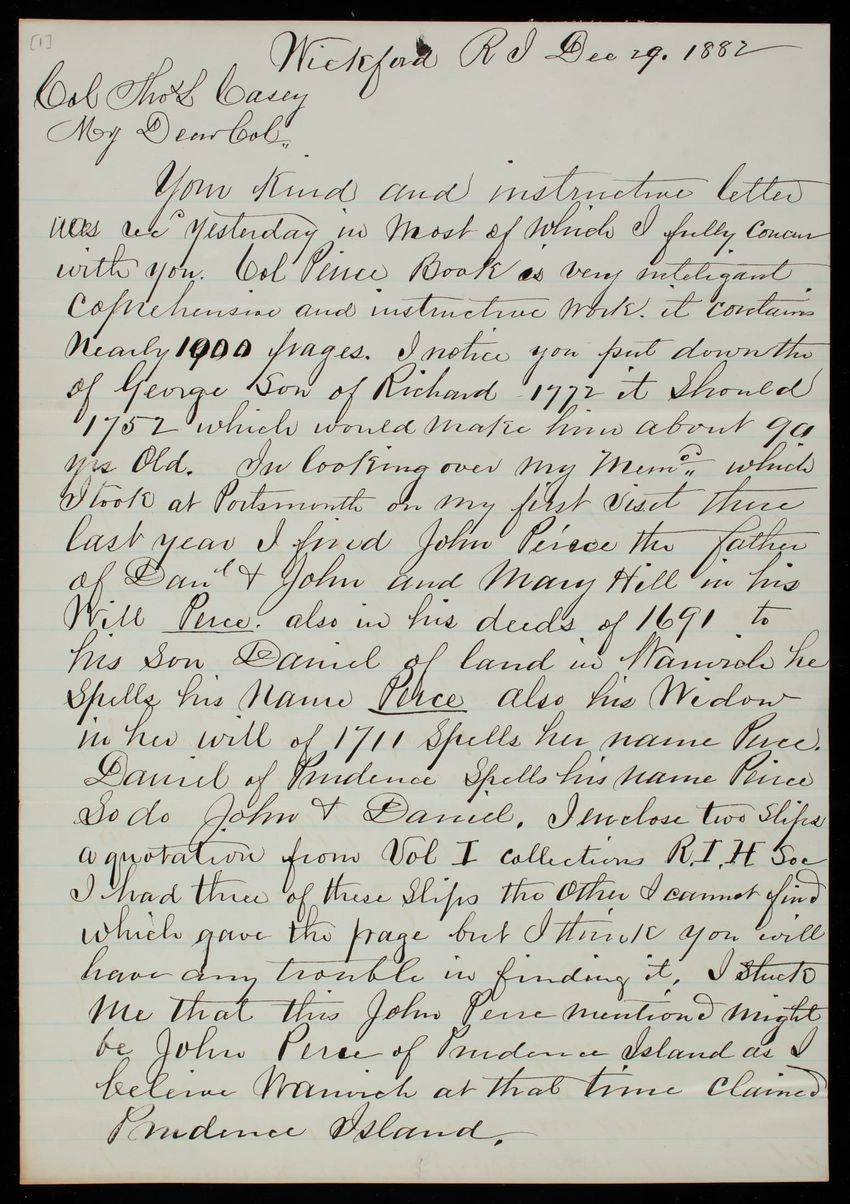 [1]
Wickford R I Dec 29. 1882
Col Thos L Casey
My Dear Col,,
Your kind and instructive letter
was recd yesterday in most of which I fully concur
with you. Col Peirce Book is very inteligant
coprehensive and instructive work. it contains
nearly 1900 pages. I notice you put down the
of George Son of Richard 1772 it should
1752 which would make him about 90
yrs Old. In looking over my Memd,, which
I took at Portsmouth on my first visit there
last year I find John Peirce the father
of Danl & John and Mary Hill in his
Will Perce. also in his deeds of 1691 to
his Son Daniel of land in Warwick he
Spells his Name Perce also his Widow
in her will of 1711 Spells her name Perce.
Daniel of Prudence Spells his name Peirce
So do John & Daniel. I enclose two slips
a quotation from Vol I collections R.I.H Soc
I had three of these slips the Other I cannot find
which gave the page but I think you will
have any trouble in finding it. I Stuck
me that this John Perse mentiond might
be John Perse of Prudence Island as I
beleive Warwick at that time claimed
Prudence Island.